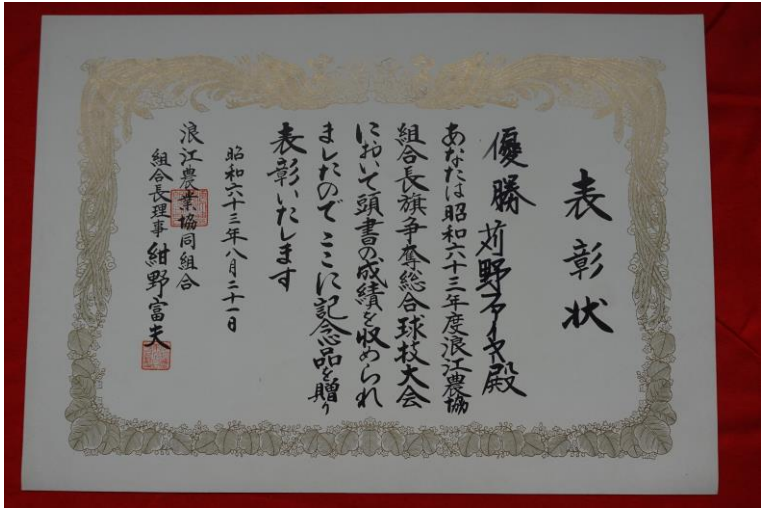 表彰状
優勝 苅野ファイヤ殿
あなたは昭和六十三年度浪江農協
組合長旗争奪総合球技大会
において頭書の成績を収められ
ましたのでここに記念品を贈り
表彰いたします
昭和六十三年八月二十一日
浪江農業協同組合
組合長理事 紺野富夫